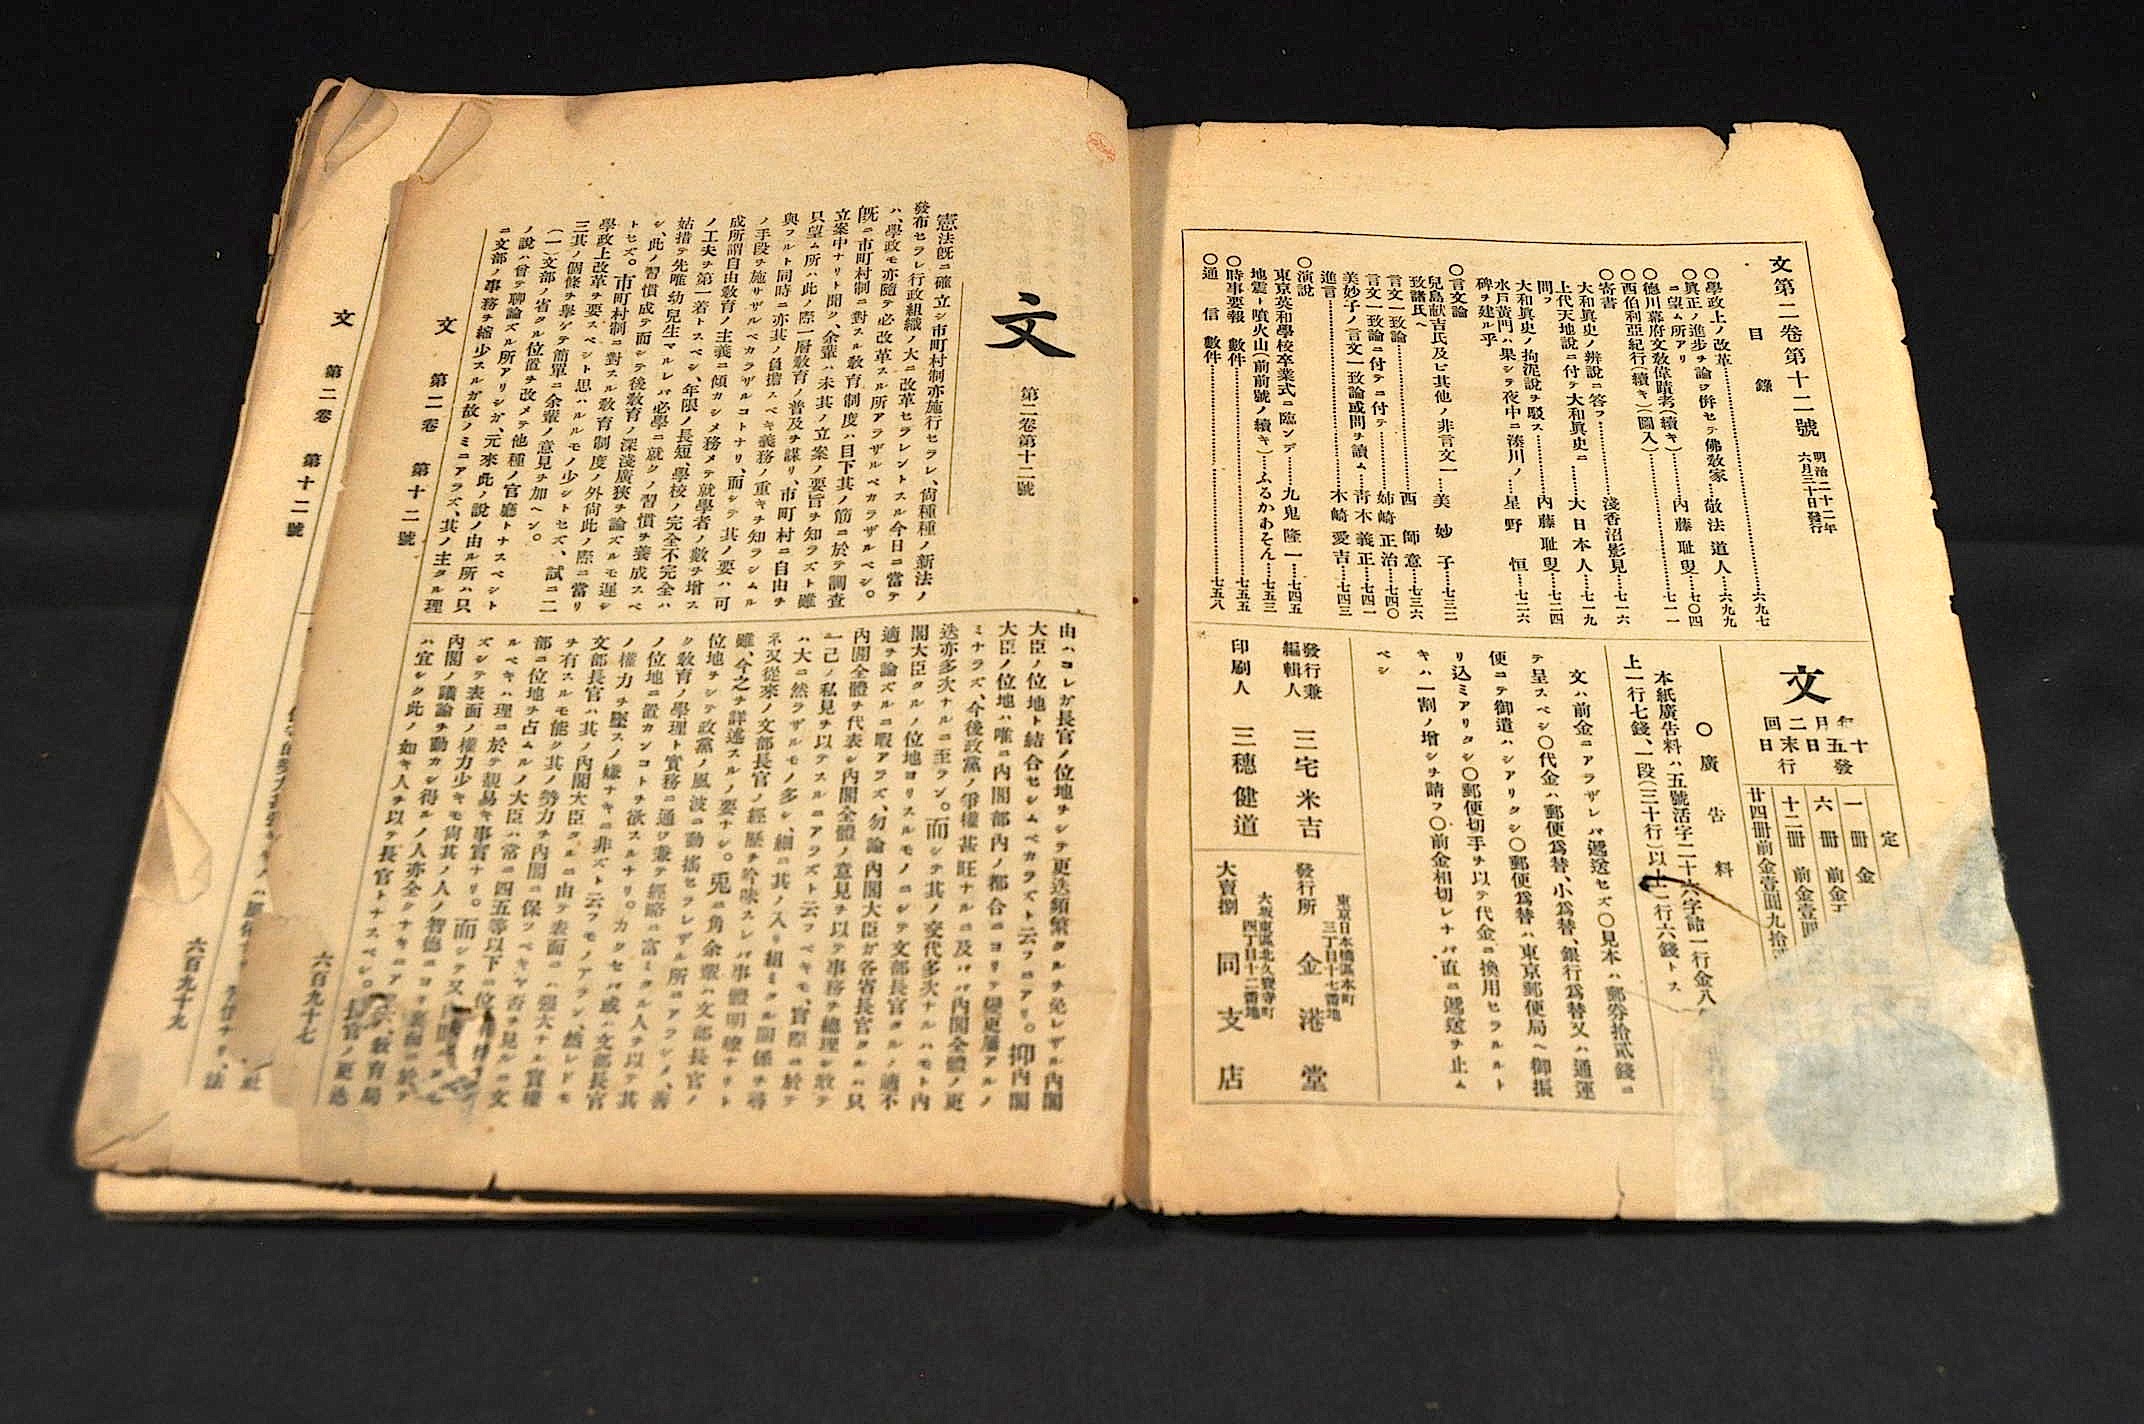 文第二卷第十二號 明治二十二年六月三十日發行
目錄
〇學政上ノ改革……六九七
〇眞正ノ進步ヲ論ヲ倂セテ佛敎家ニ望ム所アリ 敬法道人…六九九
〇德川幕府文敎偉蹟考(續キ)……內藤耻叟…七〇四
〇西伯利亞紀行(續キ)(圖入)……七一一
〇寄書
大和眞史ノ辨說ニ答フ……淺香沼影見…七一六
上代天地說ニ付テ大和眞史ニ問フ 大日本人…七一九
大和眞史ノ拘泥說ヲ駁ス……內藤耻叟…七二四
水戶黃門ハ果シテ夜中ニ湊川ノ碑ヲ建ル乎 星野恒…七二六
〇言文論
兒島献吉氏及ビ其他ノ非言文一致諸氏ヘ 美妙子…七三二
言文一致論……西師意…七三六
言文一致論ニ付テニ付テ……姉崎正治…七四〇
美妙子ノ言文一致論或問ヲ讀ム…靑木義正…七四一
進言……木崎愛吉…七四三
〇演說
東京英和學校卒業式ニ臨ンデ……九鬼隆一…七四五
地震ト噴火山(前前號ノ續キ)…ふるかあそん…七五三
〇時事要報 數件……七五五
〇通信 數件……七五八
文
每月二回
十五日末日
發行
定
一冊 金
六冊 前金
十二冊 前金壹圓
廿四冊前金壹圓九拾
〇廣告料
本紙廣告料ハ五號活字二十六字詰一行金八
上一行七錢、一段(三十行)以上一行六錢トス
文ハ前金ニアラザレバ遞送セズ〇見本ハ郵劵拾貳錢ニ
テ呈スベシ〇代金ハ郵便爲替、小爲替、銀行爲替又ハ通運
便ニテ御遣ハシアリタシ〇郵便爲替ハ東京郵便局ヘ御振
リ込ミアリタシ〇郵便切手ヲ以テ代金ニ換用セラルルト
キハ一割ノ增シヲ請フ〇前金相切レナバ直ニ遞送ヲ止ム
ベシ
發行兼編輯人 三宅米吉
印刷人 三穗健道
東京日本橋區本町三丁目十七番地
發行所 金港堂
大坂東區北久寶寺町四丁目十二番地
大賣捌 同支店
文 第二卷第十二號
憲法旣ニ確立シ市町村制亦施行セラレ、尙種種ノ新法ノ
發布セラレ行政組織ノ大ニ改革セラレントスル今日ニ當テ
ハ、學政モ亦隨テ必改革スル所アラザルベカラザルベシ。
旣ニ市町村制ニ對スル敎育制度ハ目下其ノ筋ニ於テ調查
立案中ナリト聞ク、余輩ハ未其ノ立案ノ要旨ヲ知ラズト雖
只望ム所ハ此ノ際一層敎育ノ普及ヲ謀リ、市町村ニ自由ヲ
與フルト同時ニ亦其ノ負擔スベキ義務ノ重キヲ知ラシムル
ノ手段ヲ施サザルベカラザルコトナリ、而シテ其ノ要ハ可
成所謂自由敎育ノ主義ニ傾カシメ務メテ就學者ノ數ヲ增ス
ノ工夫ヲ第一着トスベシ、年限ノ長短、學校ノ完全不完全ハ
姑措テ先唯幼兒生マルレバ必學ニ就クノ習慣ヲ養成スベ
シ、此ノ習慣成テ而シテ後敎育ノ深淺廣狹ヲ論ズルモ遲シ
トセズ。市町村制ニ對スル敎育制度ノ外尙此ノ際ニ當リ
學政上改革ヲ要スベシト思ハルルモノ少シトセズ、試ニ二
三其ノ個條ヲ擧ゲテ簡單ニ余輩ノ意見ヲ加ヘン。
(一)文部ノ省タル位置ヲ改メテ他種ノ官廳トナスベシト
ノ說ハ曾テ聊論ズル所アリシガ、元來此ノ說ノ由ル所ハ只
ニ文部ノ事務ヲ縮少スルガ故ノミニアラズ、其ノ主タル理
由ハコレガ長官ノ位地ヲシテ更迭頻繁タルヲ免レザル內閣
大臣ノ位地ト結合セシムベカラズト云フニアリ。抑內閣
大臣ノ位地ハ唯ニ內閣部內ノ都合ニヨリテ變更屢アルノ
ミナラズ、今後政黨ノ爭權甚旺ナルニ及ババ內閣全體ノ更
迭亦多次ナルニ至ラン。而シテ其ノ交代多次ナルハモト內
閣大臣タルノ位地ヨリスルモノニシテ文部長官タルノ適不
適ヲ論ズルニ暇アラズ、勿論內閣大臣ガ各省長官タルハ只
內閣全體ヲ代表シ內閣全體ノ意見ヲ以テ事務ヲ總理シ敢テ
一己ノ私見ヲ以テスルニアラズト云フベキモ、實際ニ於テ
ハ大ニ然ラザルモノ多シ、細ニ其ノ入リ組ミタル關係ヲ尋
ネ又從來ノ文部長官ノ經歷ヲ吟味スレバ事體明瞭ナリト
雖、今之ヲ詳述スルノ要ナシ。兎ニ角余輩ハ文部長官ノ
位地ヲシテ政黨ノ風波ニ動搖セラレザル所ニアラシメ、善
ク敎育ノ學理ト實務ニ通ジ兼テ經略ニ富ミタル人ヲ以テ其
ノ位地ニ置カンコトヲ欲スルナリ。カクセバ或ハ文部長官
ノ權力ヲ墜スノ嫌ナキニ非ズト云フモノアラン、然レドモ
文部長官ハ其ノ內閣大臣タルニ由テ表面ニハ强大ナル實權
ヲ有スルモ能ク其ノ勢力ヲ內閣ニ保ツベキヤ否ヲ見ルニ文
部ニ位地ヲ占ムルノ大臣ハ常ニ四五等以下ニ位
ルベキハ理ニ於テ覩易キ事實ナリ。而シテ又內閣ニ
ズシテ表面ノ權力少キモ尙其ノ人ノ智德ニヨリ裏面ニ於テ
內閣ノ議論ヲ動カシ得ルノ人亦全クナキニア 敎育局
ハ宜シク此ノ如キ人ヲ以テ長官トナスベシ。長官ノ更迭
文 第二卷 第十二號 六百九十七
文 第二卷 第十二號 六百九十九